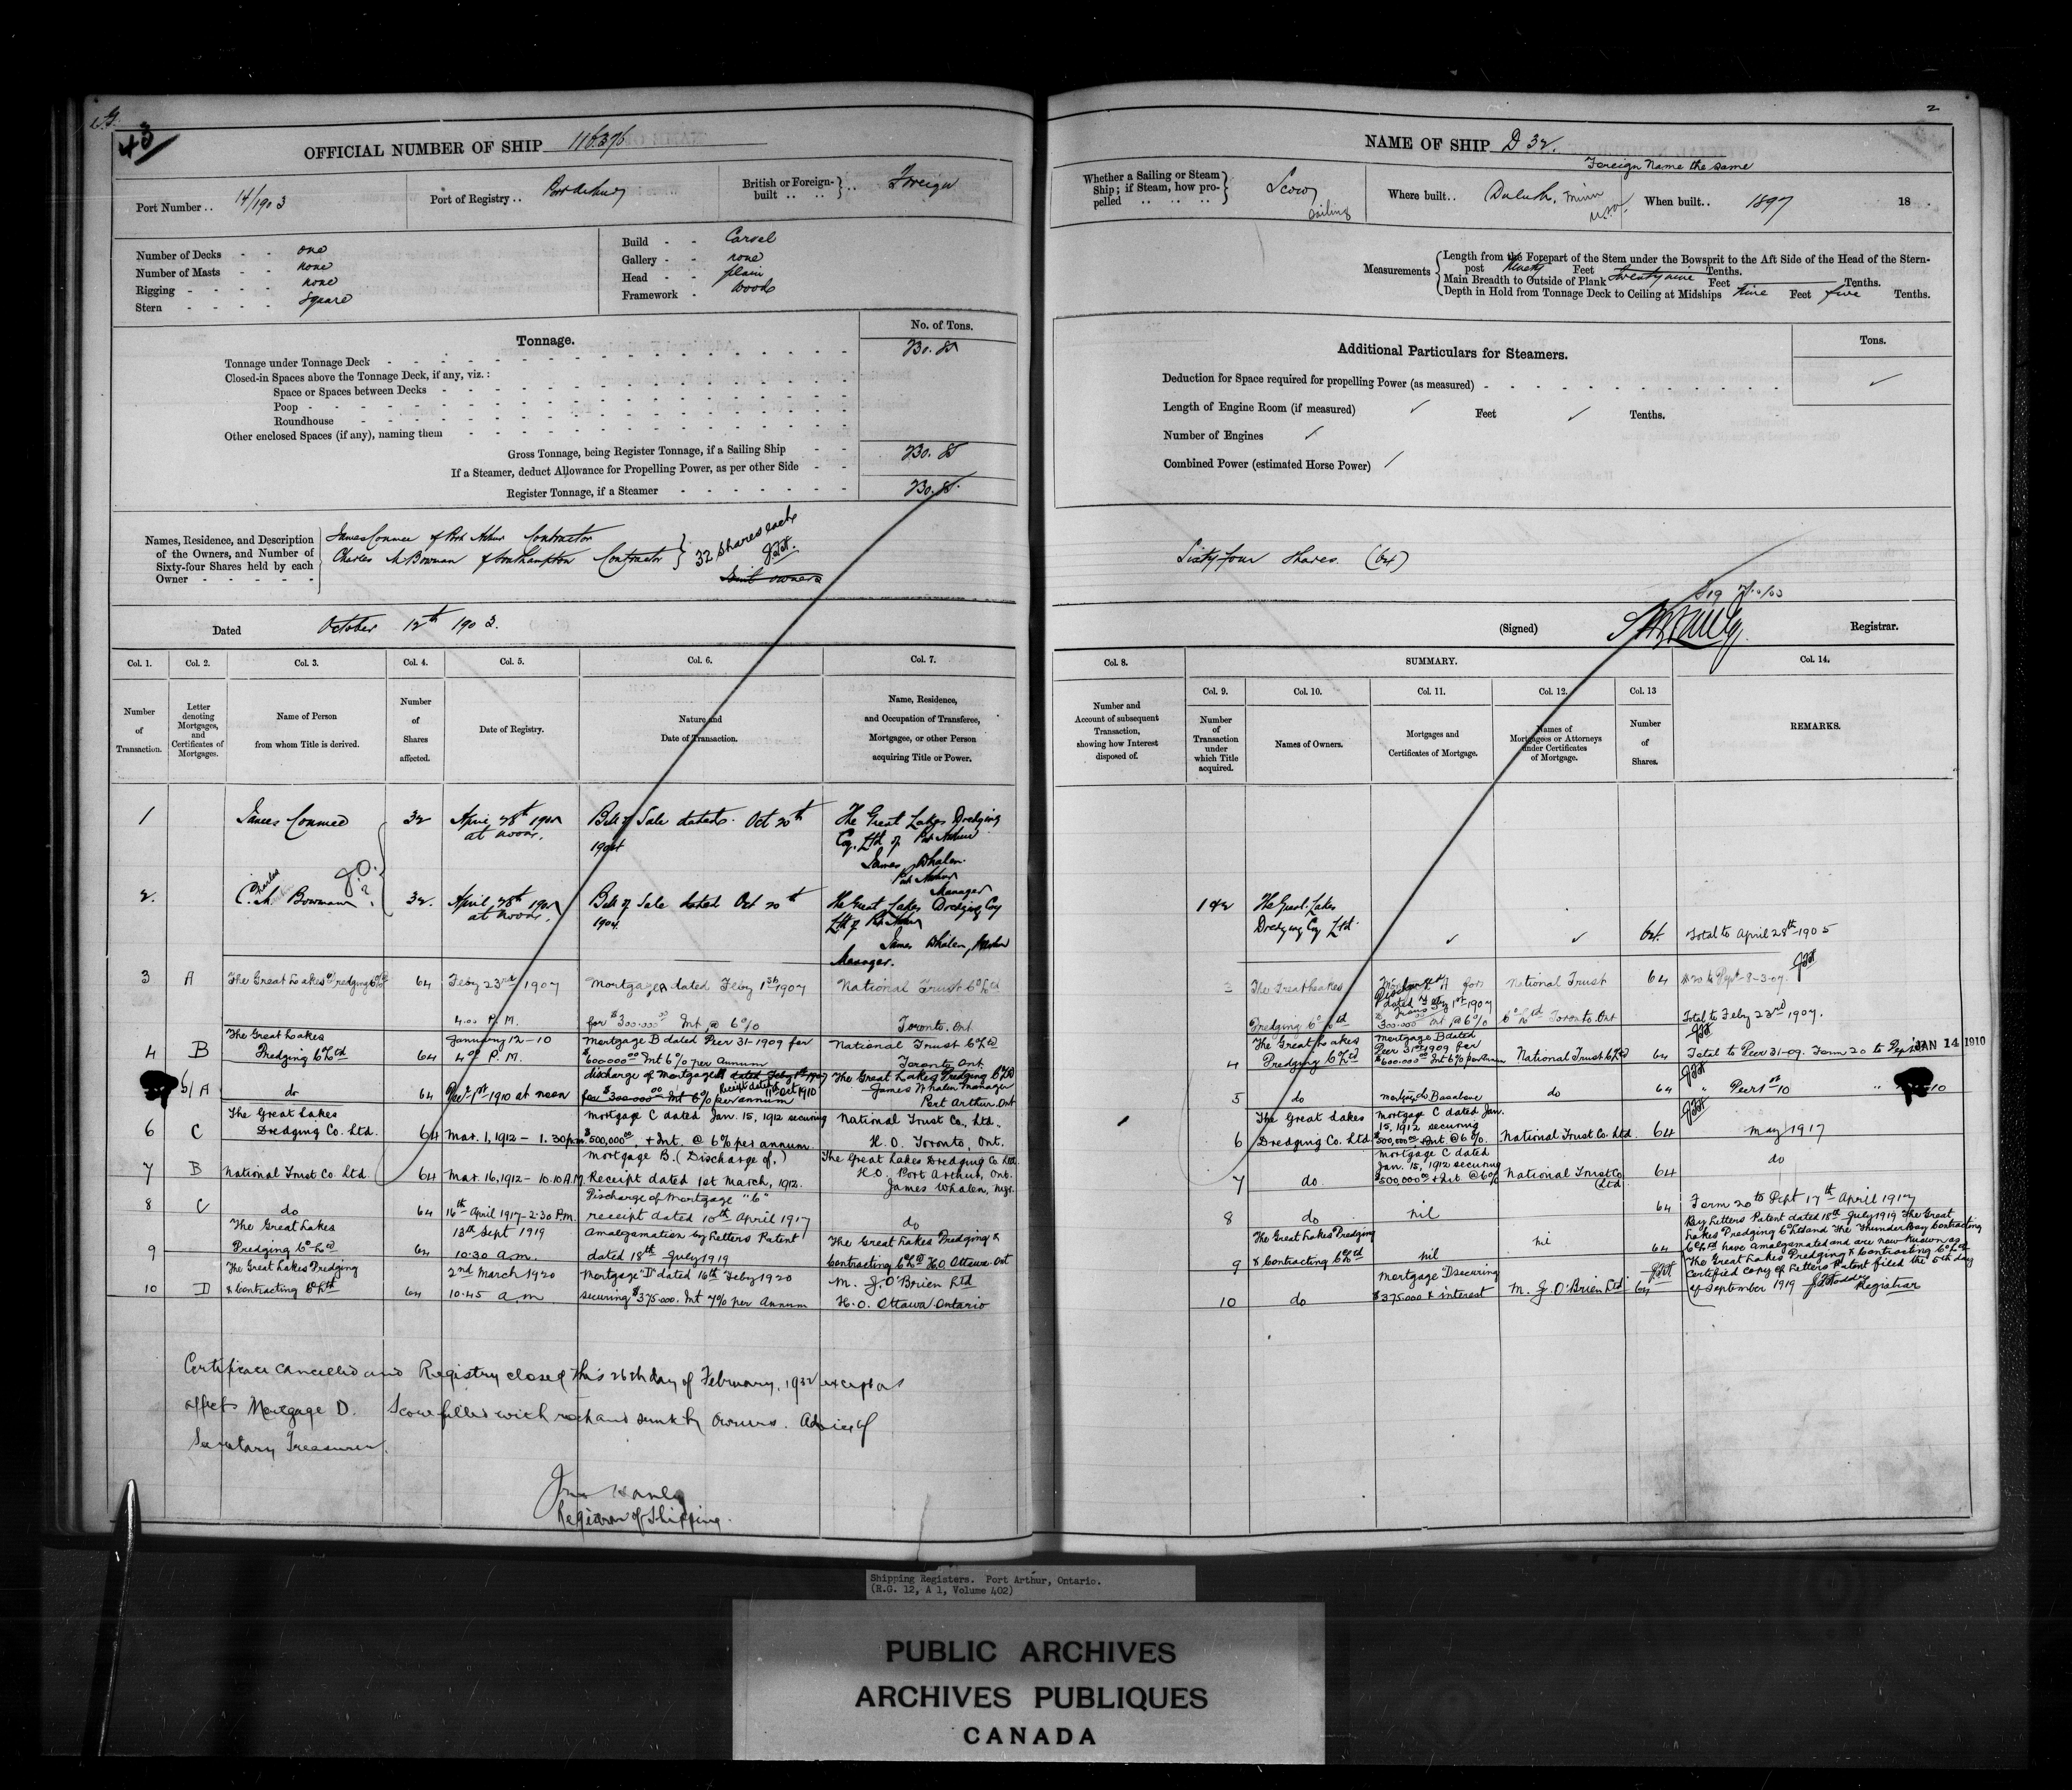 43
OFFICIAL NUMBER OF SHIP 116.376
Port Number .. 14/1903
Port of Registry .. Port Arthur
British or Foreign-built .. .. Foreign
Number of Decks - - one
Number of Masts - - none
Rigging - - - - none
Stern - - - - Square
Build - - Carvel
Gallery - - none
Head - - plain
Framework - Wood
Tonnage.
No. of Tons.
Tonnage under Tonnage Deck
Closed-in Spaces above the Tonnage Deck, if any, viz.:
Space or Spaces between Decks
Poop
Roundhouse
Other enclosed Spaces (if any), naming them
Gross Tonnage, being Register Tonnage, if a Sailing Ship
If a Steamer, deduct Allowance for Propelling Power, as per other Side
Register Tonnage, if a Steamer
Names, Residence, and Description of the Owners, and Number of Sixty-four Shares held by each Owner
James Conmee of Port Arthur Contractor
Charles M Bowman of Southampton Contractor
32 shares each
Joint owners
Dated October 12th 1903.
Col. 1. Col. 2. Col. 3. Col. 4. Col. 5. Col. 6. Col. 7.
Number of Transaction.
Letter denoting Mortgages, and Certificates of Mortgages.
Name of Person from whom Title is derived.
Number of Shares affected.
Date of Registry.
Nature and Date of Transaction.
Name, Residence, and Occupation of Transferee, Mortgagee, or other Person acquiring Title or Power.
1 James Conmee 32 April 28th 1905 at noon. Bill of Sale dated Oct 20th 1904 The Great Lakes Dredging Coy. Ltd of Port Arthur James Whalen Port Arthur Manager
2. Charles M. Bowman 32. April 28th 1905 at noon. Bill of Sale dated Oct 20th 1904. The Great Lakes Dredging Coy Ltd of Port Arthur James Whalen, Manager.
3 A The Great Lakes Dredging Co Ltd 64 Feby 23rd 1907 4.00 P.M. Mortgage A dated Feby 1st 1907 for $300.000 00 Int @ 6% National Trust Co Ltd Toronto. Ont
4 B The Great Lakes Dredging Co Ltd 64 January 12-10 4 00 P.M. Mortgage B dated Decr 31-1909 for $600.000 00 Int 6% per Annum National Trust Co Ltd Toronto Ont.
5 A do 64 Decr 1st 1910 at noon discharge of Mortgage A dated Feby 1st 1907 for $300.000 00 Int 6% per annum Receipt dated 11th Oct 1910 The Great Lakes Dredging Co Ltd James Whalen Manager Port Arthur. Ont
6 C The Great Lakes Dredging Co. Ltd. 64 Mar. 1, 1912 - 1.30 p.m. Mortgage C dated Jan. 15, 1912 securing $500,000 00, + Int. @ 6% per annum National Trust Co., Ltd., H.O. Toronto, Ont.
7 B National Trust Co Ltd 64 Mar. 16, 1912 - 10.10 A.M. Mortgage B. (Discharge of.) Receipt dated 1st March, 1912. The Great Lakes Dredging Co Ltd. H.O. Port Arthur, Ont. James Whalen, Mgr.
8 C do 64 16th April 1917 - 2.30 P.M. Discharge of Mortgage "C" receipt dated 10th April 1917 do
9 The Great Lakes Dredging Co Ltd 64 13th Sept 1919 10.30 a.m. Amalgamation by Letters Patent dated 18th July 1919 The Great Lakes Dredging & Contracting Co Ltd H.O. Ottawa. Ont
10 D The Great Lakes Dredging & Contracting Co Ltd 64 2nd March 1920 10.45 a.m Mortgage "D" dated 16th Feby 1920 securing $375.000. Int 7% per Annum M. J. O'Brien Ltd H.O. Ottawa Ontario
Certificate cancelled and Registry closed this 26th day of February, 1932 except as
affects Mortgage D. Scow filled with rock and sunk by owners. Advice of
Secretary Treasurer.
Registrar of Shipping.
2
NAME OF SHIP D 32.
Foreign Name the same
Whether a Sailing or Steam Ship; if Steam, how propelled .. .. .. Scow sailing
Where built .. Duluth, Minn U.S.A.
When built .. 1897 18
Measurements
Length from the Forepart of the Stem under the Bowsprit to the Aft Side of the Head of the Stern-
post Ninety Feet Tenths.
Main Breadth to Outside of Plank twenty nine Feet Tenths.
Depth in Hold from Tonnage Deck to Ceiling at Midships Nine Feet five Tenths.
Additional Particulars for Steamers.
Tons.
Deduction for Space required for propelling Power (as measured)
Length of Engine Room (if measured) Feet Tenths.
Number of Engines
Combined Power (estimated Horse Power)
Sixty four shares. (64)
(Signed) Registrar.
Col. 8. SUMMARY. Col. 14.
Col. 9. Col. 10. Col. 11. Col. 12. Col. 13
Number and Account of subsequent Transaction, showing how Interest disposed of.
Number of Transaction under which Title acquired.
Names of Owners.
Mortgages and Certificates of Mortgage.
Names of Mortgagees or Attorneys under Certificates of Mortgage.
Number of Shares.
REMARKS.
1 & 2 The Great Lakes Dredging Coy Ltd. 64. Total to April 28th 1905
3 The Great Lakes Dredging Co Ltd Mortgage A for dated Feby 1st 1907 $300.000 00 Int @ 6% National Trust Co Ltd Toronto. Ont 64 Total to Feby 23rd 1907.
4 The Great Lakes Dredging Co Ltd Mortgage B dated Decr 31st 1909 for $600.000 00 Int 6% per Annum National Trust Co Ltd 64 Total to Decr 31-09. Form 20 to Dept JAN 14 1910
5 do Mortgage B as above do 64 " Decr 1st 10 " 10
6 The Great Lakes Dredging Co. Ltd Mortgage C dated Jan. 15, 1912 securing $500,000 00 + Int @ 6%. National Trust Co. Ltd. 64 May 1917
7 do. Mortgage C dated Jan. 15, 1912 securing $500,000 00 + Int @ 6% National Trust Co Ltd 64 do
8 do nil 64 Form 20 to Dept 17th April 1917
9 The Great Lakes Dredging & Contracting Co Ltd nil nil 64 By Letters Patent dated 18th July 1919 The Great
Lakes Dredging Co Ltd and The Thunder Bay Contracting
Co Ltd have amalgamated and are now known as
The Great Lakes Dredging & Contracting Co Ltd
Certified copy of Letters Patent filed the 5th day
of September 1919 Registrar
10 do Mortgage D securing $375.000 & interest M. J. O'Brien Ltd 64
Shipping Registers. Port Arthur, Ontario.
(R.G. 12, A 1, Volume 402)
PUBLIC ARCHIVES
ARCHIVES PUBLIQUES
CANADA